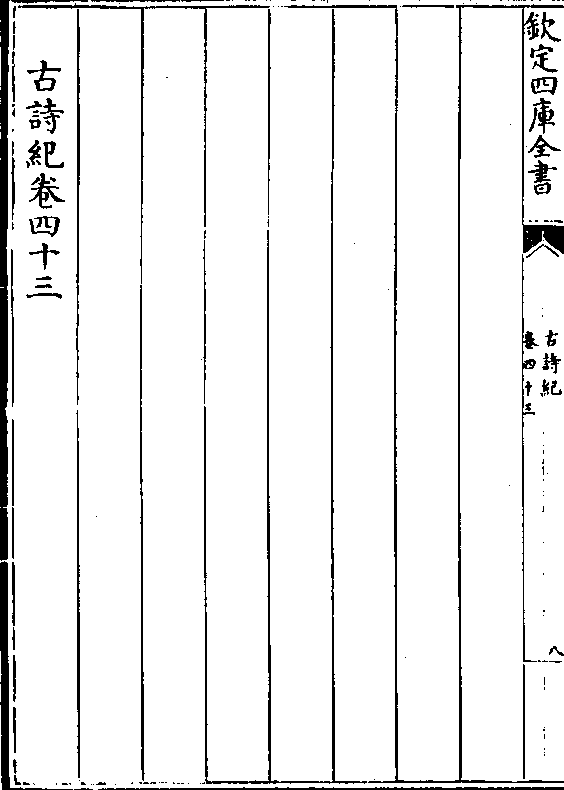 欽定四庫全書
古詩紀
卷四十三
八
古詩紀卷四十三